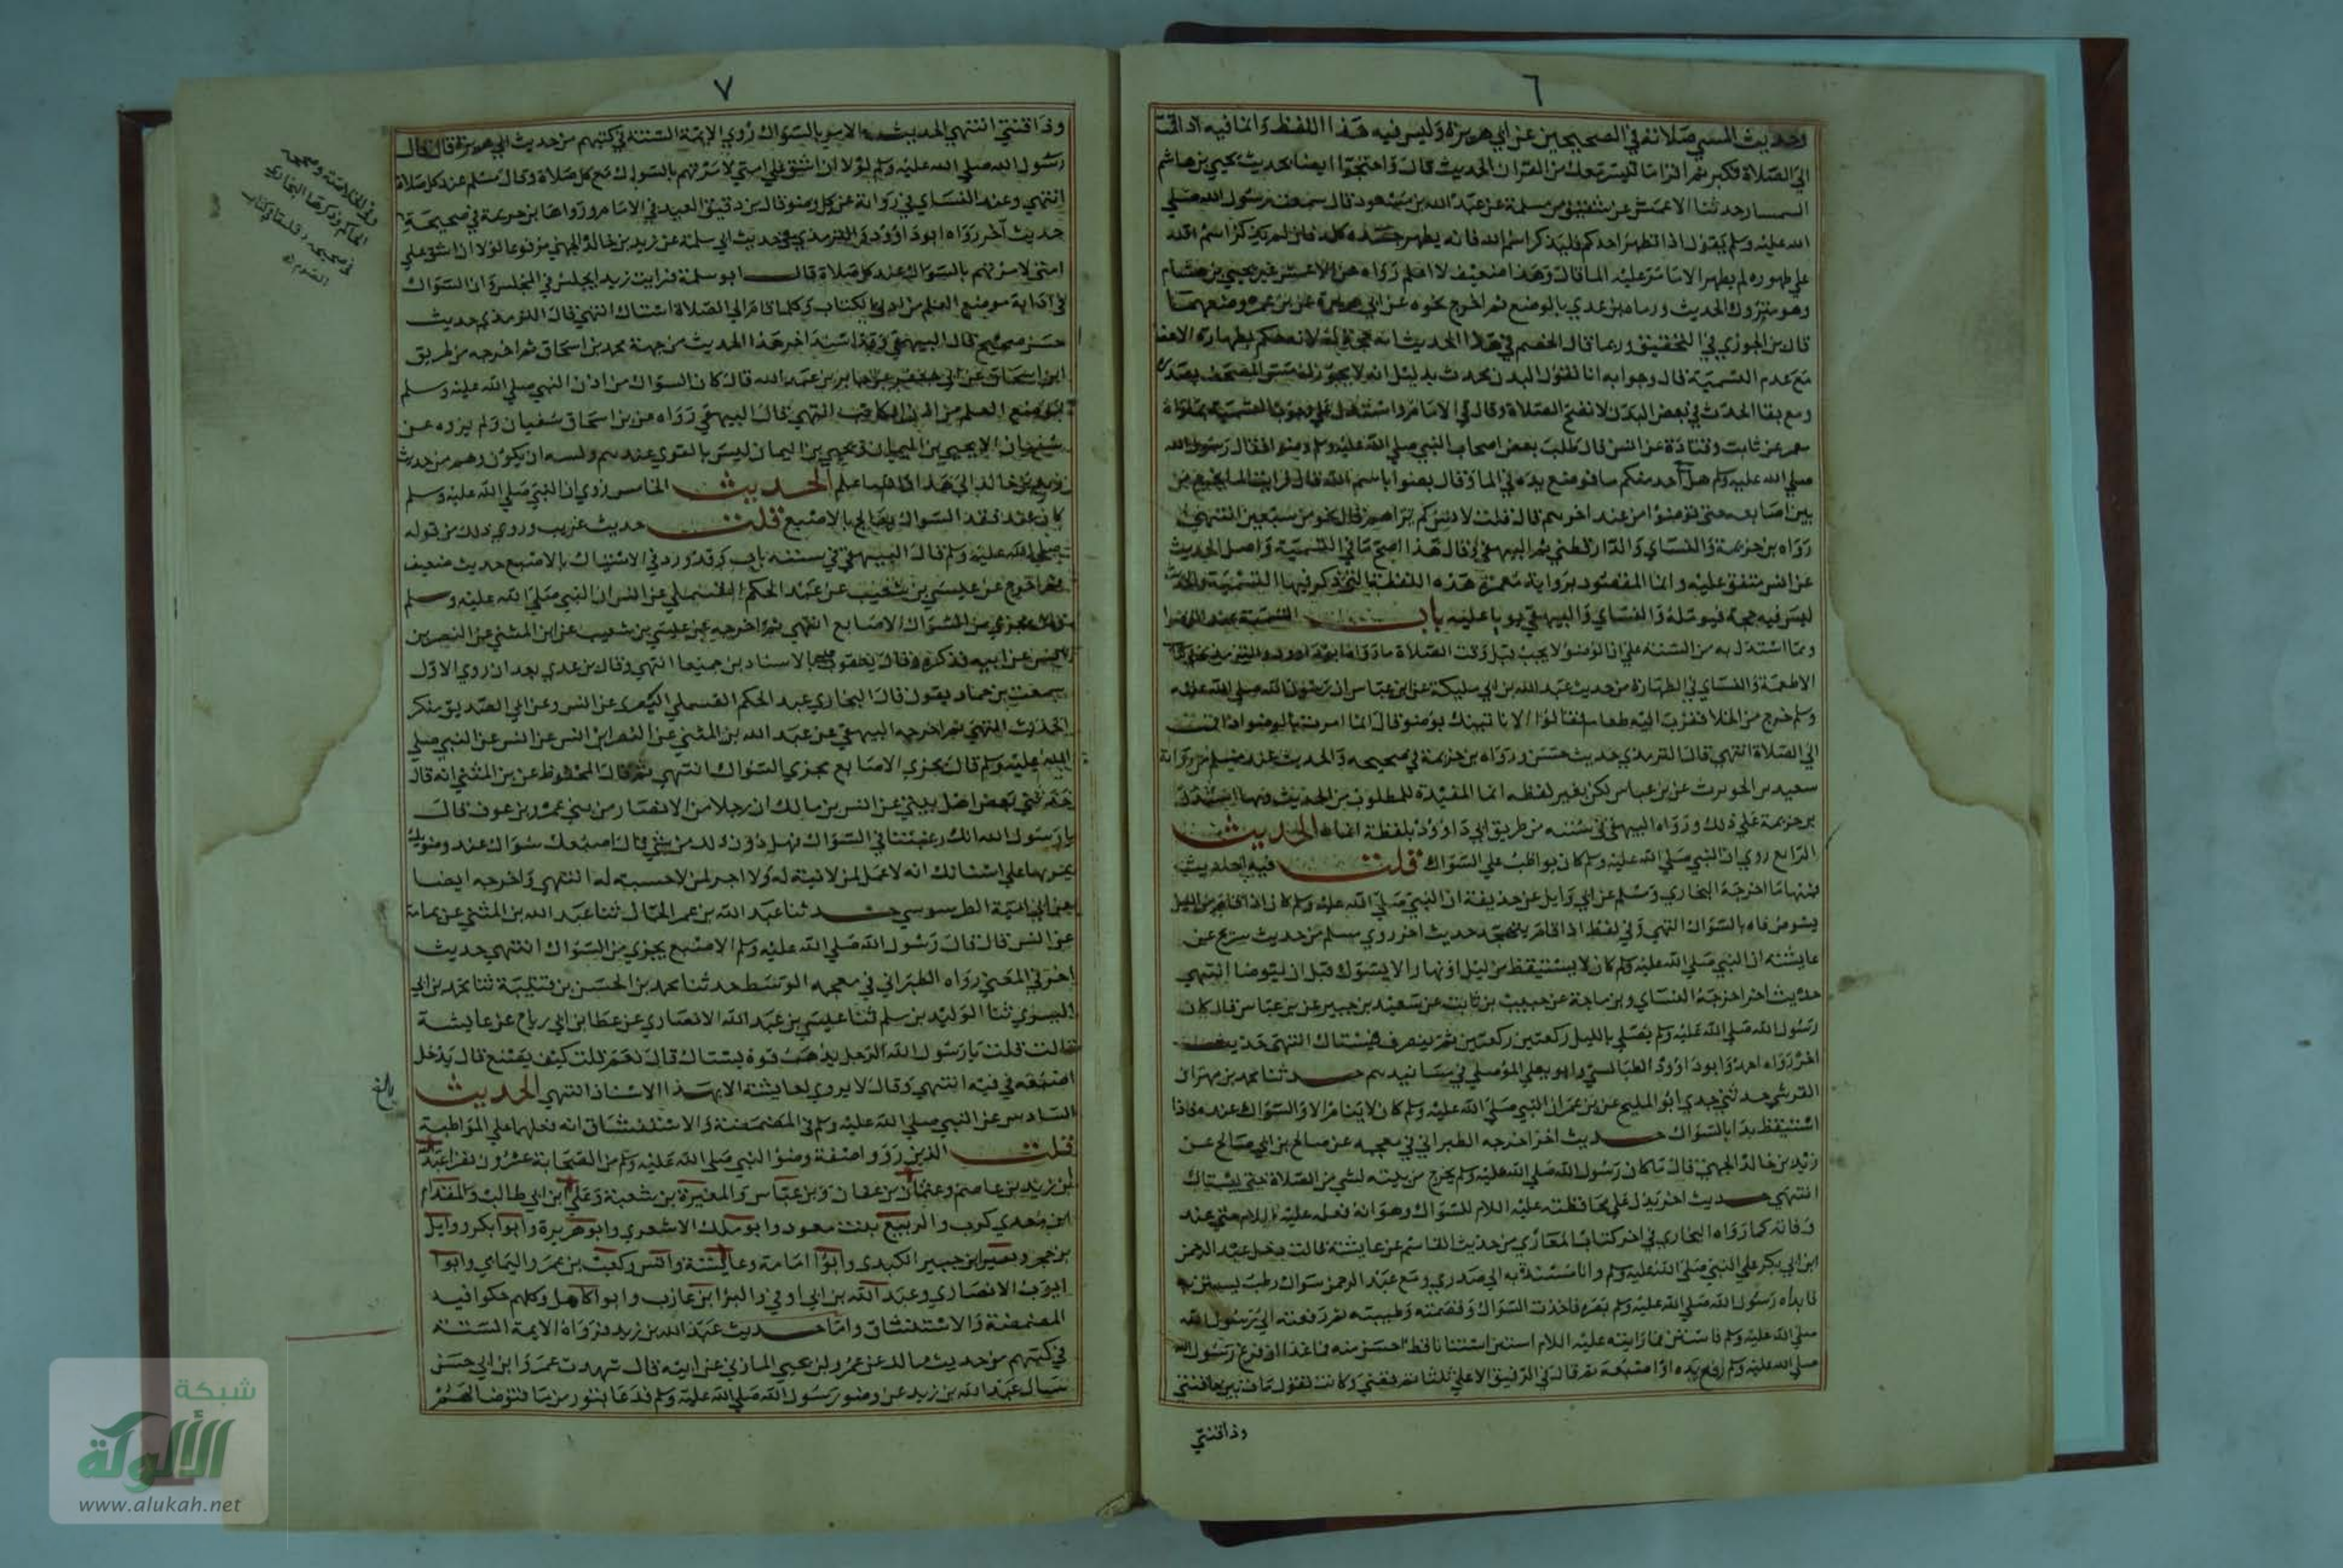 ٦
وحديث المسي صلاته في الصحيحين عن ابي هريرة وليس فيه هذا اللفظ وانما فيه اذا قمت
الي الصلاة فكبر ثم اقرا ما تيسر معك من القران الحديث قال واحتجوا ايضا بحديث يحيي بن هاشم
السمسار حدثنا الاعمش عن شقيق بن سلمة عن عبد الله بن مسعود قال سمعت رسول الله صلي
الله عليه وسلم يقول اذا تطهر احدكم فليذكر اسم الله فانه يطهر جسده كله فان لم يذكر اسم الله
علي طهوره لم يطهر الا ما مر عليه الما قال وهذا ضعيف لا اعلم رواه عن الاعمش غير يحيي بن هشام
وهو متروك الحديث ورماه بن عدي بالوضع ثم اخرج نحوه عن ابي هريرة عن بن عمر وضعفهما
قال بن الجوزي في التحقيق وربما قال الخصم في هذا الحديث انه حجة لنا لانه حكم بطهارة الاعضا
مع عدم التسمية قال وجوابه انا نقول البدن محدث بدليل انه لا يجوز له مس المصحف بصدره
ومع بقا الحدث في بعض البدن لا تصح الصلاة وقال في الامام واستدل علي وجوب التسمية بما رواه
معمر عن ثابت وقتادة عن انس قال طلب بعض اصحاب النبي صلي الله عليه وسلم وضوا فقال رسول الله
صلي الله عليه وسلم هل احد منكم ما فوضع يده في الما وقال توضوا باسم الله قال فرايت الما يخرج من
بين اصابعه حتي توضوا من عند اخرهم قال قلت لانس كم تراهم قال نحو من سبعين انتهي
رواه بن خزيمة والنساي والدارقطني ثم البيهقي وقال هذا اصح ما في التسمية واصل الحديث
عن انس متفق عليه وانما المقصود برواية معمر هذه اللفظة التي ذكر فيها التسمية
ليس فيه حجة فيوتله والنساي والبيهقي بوبا عليه باب التسمية عند الوضوا
ومما استدل به من السنة علي ان الوضو لا يجب قبل وقت الصلاة ما رواه ابوداود والترمذي في
الاطعمة والنساي في الطهارة من حديث عبد الله بن ابي مليكة عن ابن عباس ان رسول الله صلي الله عليه
وسلم خرج من الخلا فقرب اليه طعام فقالوا الا ناتيك بوضو قال انما امرت بالوضو اذا قمت
الي الصلاة انتهي قال الترمذي حديث حسن ورواه بن خزيمة في صحيحه والحديث عند مسلم من رواية
سعيد بن الحويرث عن بن عباس لكن بغير لفظه انما المفيدة للمطلوب من الحديث وبها استدل
بن خزيمة علي ذلك ورواه البيهقي في سننه من طريق ابي داوود بلفظة انما الحديث
الرابع روي ان النبي صلي الله عليه وسلم كان يواظب علي السواك قلت فيه احاديث
فمنها ما اخرجه البخاري ومسلم عن ابي وايل عن حذيفة ان النبي صلي الله عليه وسلم كان اذا قام من الليل
يشوص فاه بالسواك انتهي وفي لفظ اذا قام يتهجد حديث اخر روي مسلم من حديث سريج عن
عايشة ان النبي صلي الله عليه وسلم كان لا يستيقظ من ليل او نهار الا يتسوك قبل ان يتوضا انتهي
حديث اخر اخرجه النساي وبن ماجة عن حبيب بن ثابت عن سعيد بن جبير عن بن عباس قال كان
رسول الله صلي الله عليه وسلم يصلي بالليل ركعتين ركعتين ثم ينصرف فيستاك انتهي حديث
اخر رواه احمد وابو داوود الطيالسي وابو يعلي الموصلي في مسانيدهم حدثنا محمد بن مهران
القرشي حدثني جدي ابو المليح عن بن عمر ان النبي صلي الله عليه وسلم كان لا ينام الا والسواك عنده فاذا
استيقظ بدا بالسواك حديث اخر اخرجه الطبراني في معجمه عن صالح بن ابي صالح عن
زيد بن خالد الجهني قال ما كان رسول الله صلي الله عليه وسلم يخرج من بيته لشي من الصلاة حتي يستاك
انتهي حديث اخر يدل علي محافظته عليه السلام للسواك وهو انه فعله عليه السلام حتي عند
وفاته كما رواه البخاري في اخر كتاب المغازي من حديث القاسم عن عايشة قالت دخل عبد الرحمن
ابن ابي بكر علي النبي صلي الله عليه وسلم وانا مسندته الي صدري ومع عبد الرحمن سواك رطب يستن به
فابداه رسول الله صلي الله عليه وسلم بصره فاخذت السواك وقضمته وطيبته ثم دفعته الي رسول الله
صلي الله عليه وسلم فاستن فما رايته عليه السلام استن استنانا قط احسن منه فما عدا ان فرغ رسول الله
صلي الله عليه وسلم رفع يده او اصبعه ثم قال في الرفيق الاعلي ثلثا ثم قضي وكانت تقول مات بين حاقنتي
وذاقنتي
٧
وذاقنتي انتهي الحديث الامر بالسواك روي الايمة الستة في كتبهم من حديث ابي هريرة قال قال
رسول الله صلي الله عليه وسلم لولا ان اشق علي امتي لامرتهم بالسواك مع كل صلاة وقال مسلم عند كل صلاة
انتهي وعند النساي في رواية عند كل وضو قال بن دقيق العيد في الامام ورواها بن خزيمة في صحيحه
حديث آخر رواه ابوداوود والترمذي في حديث ابي سلمة عن زيد بن خالد الجهني مرفوعا لولا ان اشق علي
امتي لامرتهم بالسواك عند كل صلاة قال ابو سلمة فرايت زيدا يجلس في المجلس وان السواك
في اذنه موضع القلم من اذن الكاتب وكلما قام الي الصلاة استاك انتهي قال الترمذي حديث
حسن صحيح قال البيهقي وقد اسند اخر هذا الحديث من جهة محمد بن اسحاق ثم اخرجه من طريق
ابن اسحاق عن ابي جعفر عن جابر بن عبد الله قال كان السواك من اذن النبي صلي الله عليه وسلم
موضع القلم من اذن الكاتب انتهي قال البيهقي رواه عن بن اسحاق سفيان ولم يروه عن
سفيان الا يحيي بن اليمان ويحيي بن اليمان ليس بالقوي عندهم ويشبه ان يكون وهم من حديث
زيد بن خالد الي هذا الحديث الخامس روي ان النبي صلي الله عليه وسلم
كان عند فقد السواك يعالج بالاصبع قلت حديث غريب وروي ذلك من قوله
صلي الله عليه وسلم قال البيهقي في سننه باب قد ورد في الاستياك بالاصبع حديث ضعيف
ثم اخرج عن عيسي بن شعيب عن عبد الحكم القسملي عن انس ان النبي صلي الله عليه وسلم
قال يجزي من السواك الاصابع انتهي ثم اخرجه عن عيسي بن شعيب عن ابن المثني عن النضر بن
انس عن ابيه فذكره وقال بالاسنادين جميعا انتهي وقال بن عدي بعد ان روي الاول
سمعت بن حماد يقول قال البخاري عبد الحكم القسملي البصري عن انس وعن ابي الصديق منكر
الحديث انتهي ثم اخرجه البيهقي عن عبد الله بن المثني عن النضر ابن انس عن انس عن النبي صلي
الله عليه وسلم قال يجزي الاصابع مجزي السواك انتهي ثم قال المحفوظ عن بن المثني انه قال
حدثني بعض اهل بيتي عن انس بن مالك ان رجلا من الانصار من بني عمرو بن عوف قال
يا رسول الله انك رغبتنا في السواك فهل دون ذلك من شي قال اصبعك سواك عند وضوئك
تمر بها علي اسنانك انه لا عمل لمن لا نية له ولا اجر لمن لا حسبة له انتهي واخرجه ايضا
عن ابي امية الطرسوسي حدثنا عبد الله بن عمر الحمال ثنا عبد الله بن المثني عن ثمامة
عن انس قال قال رسول الله صلي الله عليه وسلم الاصبع يجزي من السواك انتهي حديث
اخر في المعني رواه الطبراني في معجمه الوسط حدثنا محمد بن الحسن بن قتيبة ثنا محمد بن ابي
السري ثنا الوليد بن مسلم ثنا عيسي بن عبد الله الانصاري عن عطا بن ابي رباح عن عايشة
قالت قلت يا رسول الله الرجل يذهب فوه يستاك قال نعم قلت كيف يصنع قال يدخل
اصبعه في فيه انتهي وقال لا يروي لعايشة الا بهذا الاسناد انتهي الحديث
السادس عن النبي صلي الله عليه وسلم في المضمضة والاستنشاق انه فعلهما علي المواظبة
قلت الذين رووا صفة وضو النبي صلي الله عليه وسلم من الصحابة عشرون نفرا عبد الله
بن زيد بن عاصم وعثمان بن عفان وبن عباس والمغيرة بن شعبة وعلي ابن ابي طالب والمقدام
ابن معدي كرب والربيع بنت معود وابو ملك الاشعري وابو هريرة وابوا بكر ووايل
بن حجر ونفير ابن جبير الكندي وابوا امامة وعايشة وانس وكعب بن عمرو اليماي وابوا
ايوب الانصاري وعبد الله بن ابي اوفي والبرا بن عازب وابوا كاهل وكلهم حكوا فيه
المضمضة والاستنشاق واما حديث عبد الله بن زيد فرواه الايمة الستة
في كتبهم من حديث مالك عن عمرو بن يحيي المازني عن ابيه قال شهدت عمرو ابن ابي حسن
سال عبد الله بن زيد عن وضو رسول الله صلي الله عليه وسلم فدعا بتور من ما فتوضا لهم
وفي الخلاصة وصححه
الحاكم وذكرها البخاري
في صحيحه قلت في كتاب
الصوم
بلغ
شبكة
الألوكة
www.alukah.net